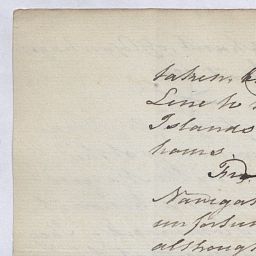 taken
Line to
Islands
hours
Navigat
unfortun
although